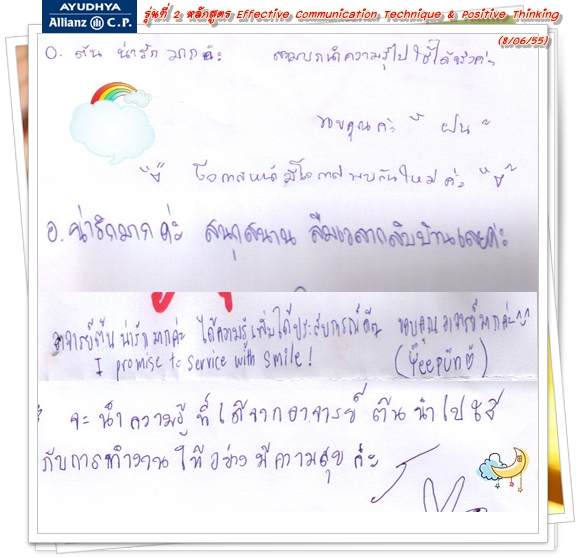 AYUDHYA
Allianz C.P.
รุ่นที่ 2 หลักสูตร Effective Communication Technique & Positive Thinking
(8/06/55)
อ. ต้น น่ารัก มากค่ะ สามารถนำความรู้ไปใช้ได้จริงค่ะ
ขอบคุณค่ะ " ฝน "
โอกาสหน้ามีโอกาสพบกันใหม่ ค่ะ
อ. น่ารักมาก ค่ะ สนุกสนาน ลืมเวลากลับบ้านเลยค่ะ
อาจารย์ต้น น่ารัก มากค่ะ ได้ความรู้เพิ่ม ได้ประสบการณ์ ขอบคุณ อาจารย์มากค่ะ ^^
I promise to service with smile!
จะนำ ความรู้ ที่ได้จากอาจารย์ ต้น นำไปใช้
กับการทำงาน ให้อย่าง มีความสุข ค่ะ